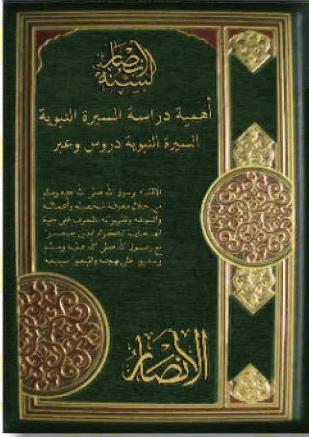 أنصار السنة
أهمية دراسة السيرة النبوية
السيرة النبوية دروس وعبر
الاقتداء برسول الله صلى الله عليه وسلم
من خلال معرفة شخصيته وأعماله
وأقواله وتقريراته
مع رسول الله صلى الله عليه وسلم
الأنصار